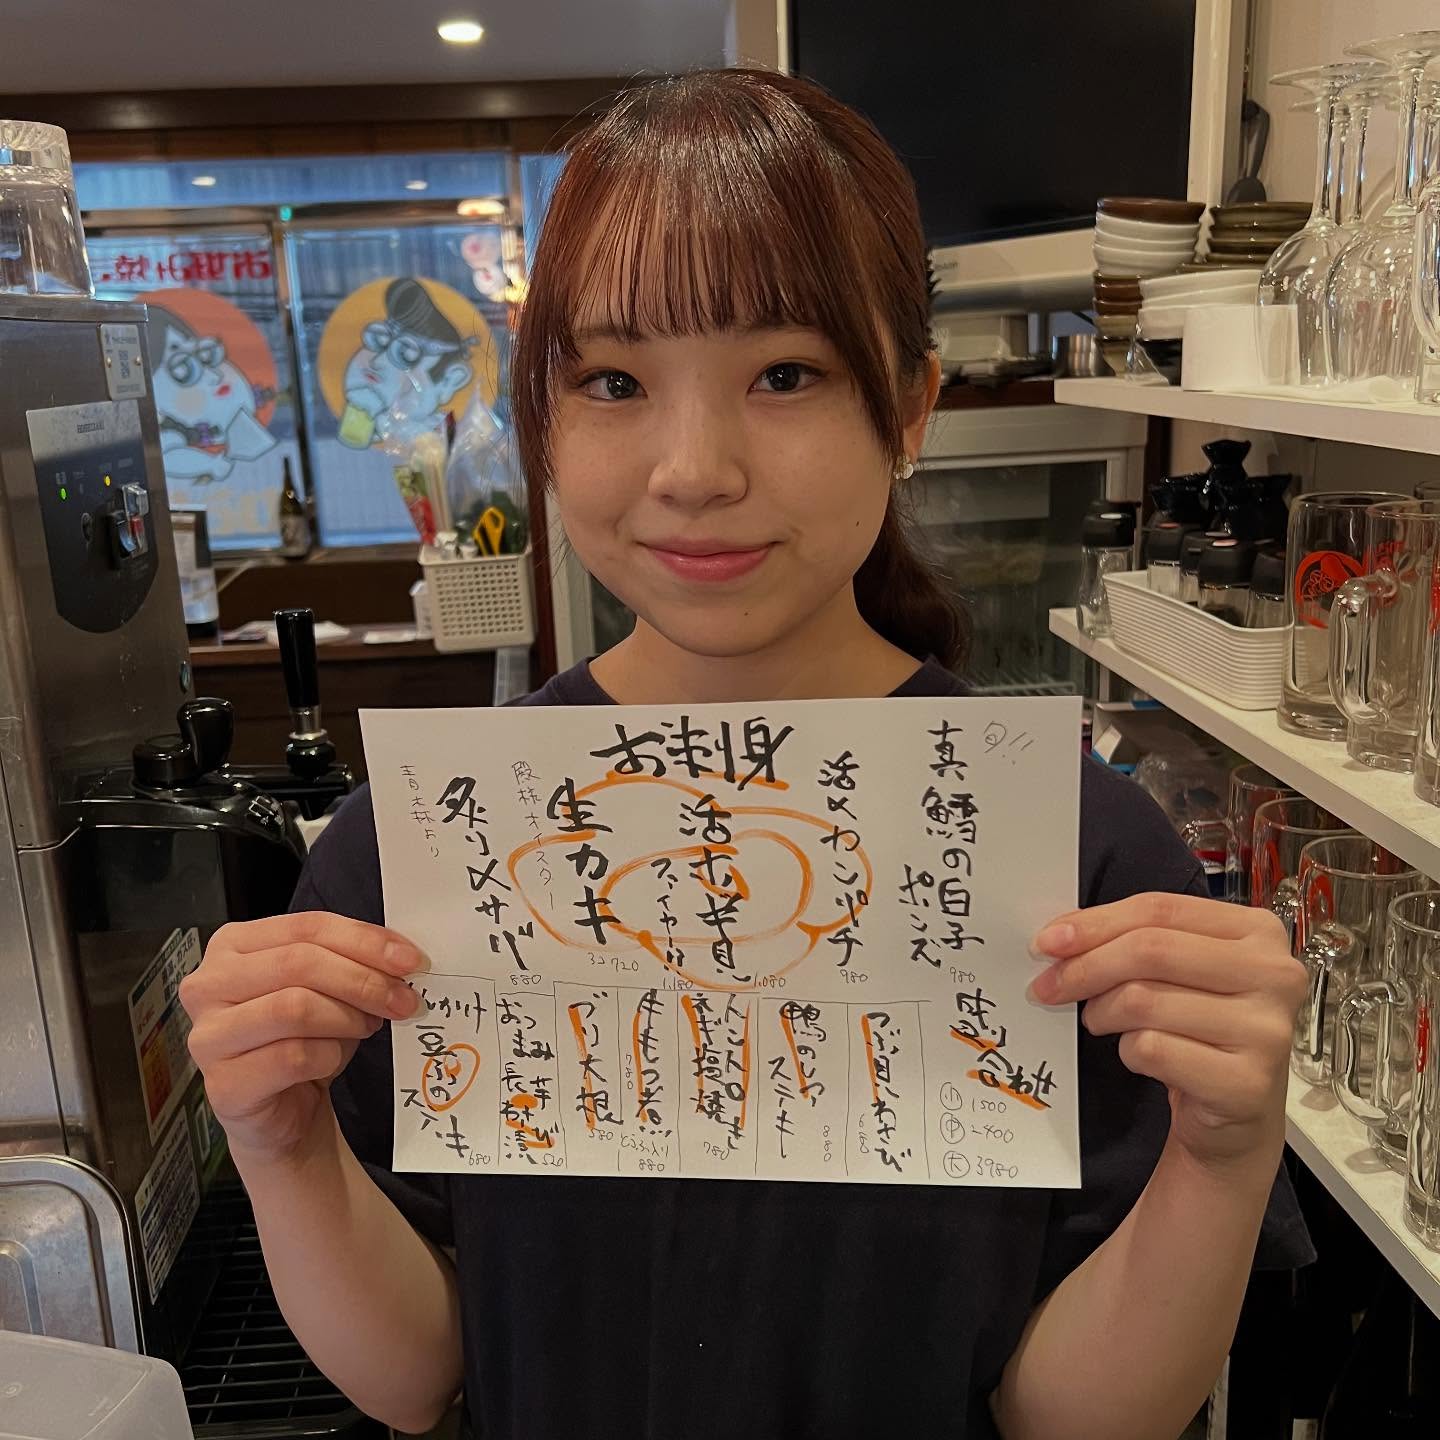 お刺身
旬!!
真鱈の白子
ポンズ
980
活〆カンパチ
980
活ホッキ貝
1,080
フライヤー!!
1,180
生カキ
殿様オイスター
3コ720
炙り〆サバ
青木林より
880
盛り合わせ
小 1500
中 2400
大 3980
つぶ貝わさび
680
鴨のレアステーキ
880
トントロ
ネギ塩焼き
780
牛もつ煮
780
とうふ入り
880
ブリ大根
580
おつまみ長芋
わさび漬
520
あんかけ
豆ふの
ステーキ
680
お好み焼
HOSHIZAKI